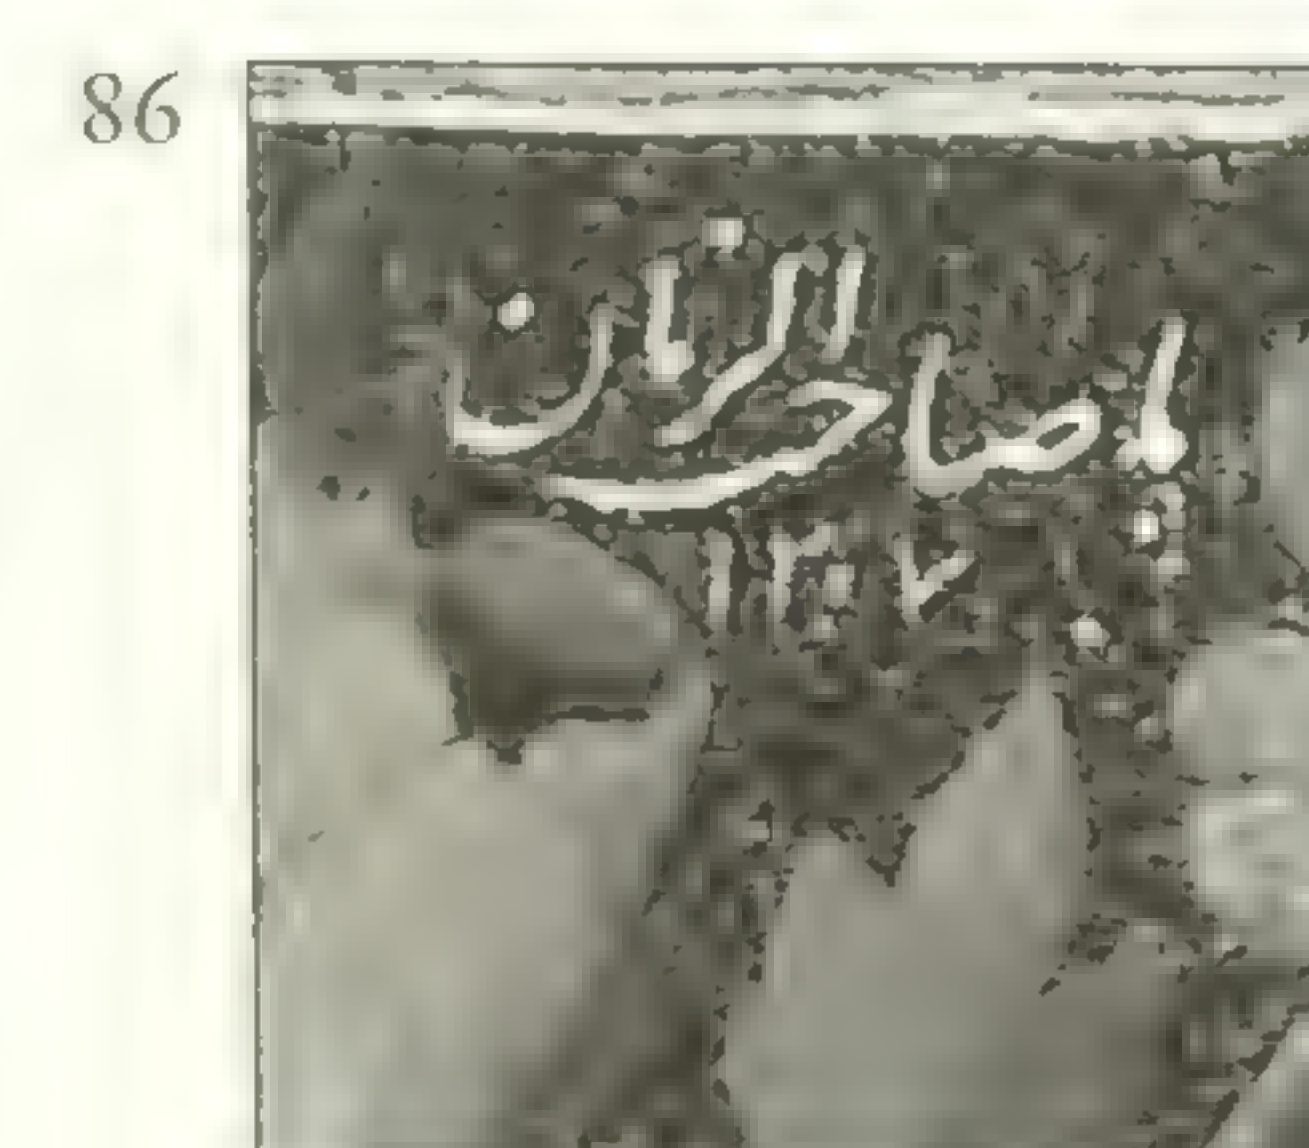 86
یا صاحب الزمان